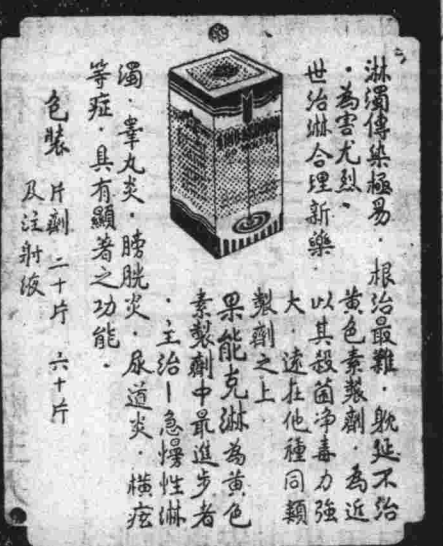 淋濁傳染極易．根治最難．躭延不治
．為害尤烈、黃色素製劑．為近
世治淋合理新藥．以其殺菌净毒力強
大．遠在他種同類
製劑之上．
果能克淋為黃色
素製劑中最進步者
．主治－急慢性淋
濁．睾丸炎．膀胱炎．尿道炎．橫痃
等症．具有顯著之功能．
包裝 片劑 二十片 六十片
及注射液